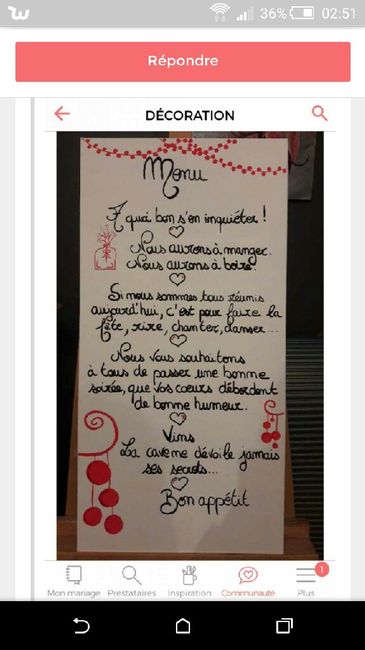 36% 02:51
Répondre
DÉCORATION
Menu
A quoi bon s'en inquiéter !
Nous aurons à manger.
Nous aurons à boire!
Si nous sommes tous réunis
aujourd'hui, c'est pour faire la
fête, rire, chanter, danser...
Nous vous souhaitons
à tous de passer une bonne
soirée, que vos cœurs débordent
de bonne humeur.
Vins
La caverne dévoile jamais
ses secrets...
Bon appétit
Mon mariage Prestataires Inspiration Communauté Plus
1